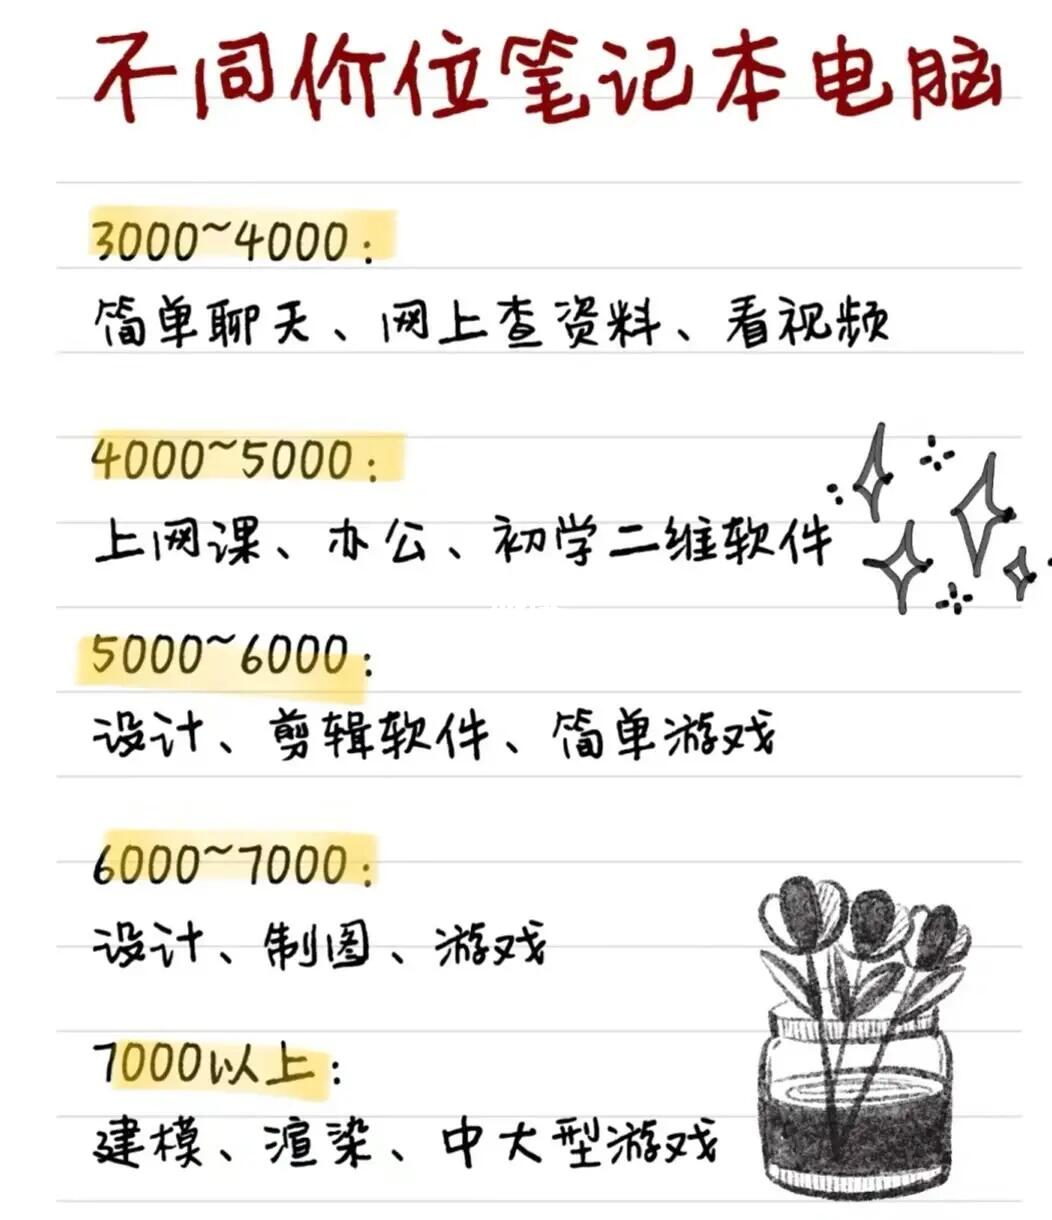 不同价位笔记本电脑
3000~4000：
简单聊天、网上查资料、看视频
4000~5000：
上网课、办公、初学二维软件
5000~6000：
设计、剪辑软件、简单游戏
6000~7000：
设计、制图、游戏
7000以上：
建模、渲染、中大型游戏